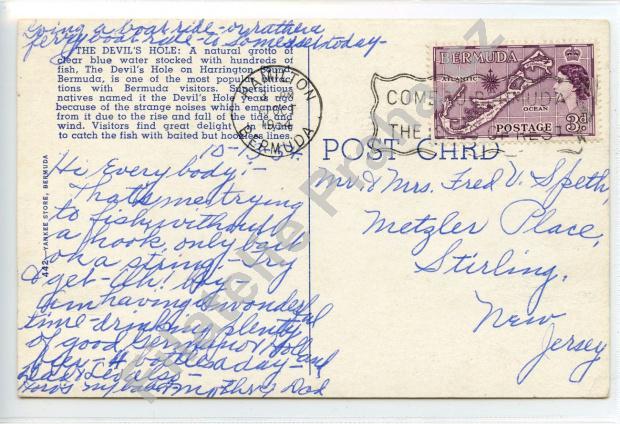 Going a boat ride - or rather a
ferry boat ride to Somerset today -
THE DEVIL'S HOLE: A natural grotto of
clear blue water stocked with hundreds of
fish, The Devil's Hole on Harrington Sound
Bermuda, is one of the most popular attrac-
tions with Bermuda visitors. Superstitious
natives named it the Devil's Hole years ago
because of the strange noises which emanated
from it due to the rise and fall of the tide and
wind. Visitors find great delight in trying
to catch the fish with baited but hookless lines.
442—YANKEE STORE, BERMUDA
10-1-54
Hi Everybody! -
That's me trying
to fish without
a hook, only bait
on a string! - Try
& get - Oh! Boy
am having a wonderful
time - drinking plenty
of good German or Holland
beer - 4 bottles a day -
Love
Mother & Dad
HAMILTON
OCT
1954
BERMUDA
COME TO BERMUDA
THE
BERMUDA
ATLANTIC
OCEAN
POSTAGE
3d
POST CARD
Mr & Mrs. Fred V. Speth,
Metzler Place,
Stirling,
New
Jersey
Filatelie Praha.cz